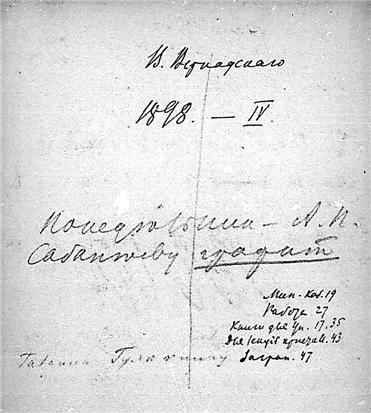 В. Вернадскаго
1898. – IV.
Понедѣльник – А. П.
Сабанѣеву графит
Мин. Каб. 19
Работа 27
Книги для 17, 35
Для 43
Загран. 47
Татьяна